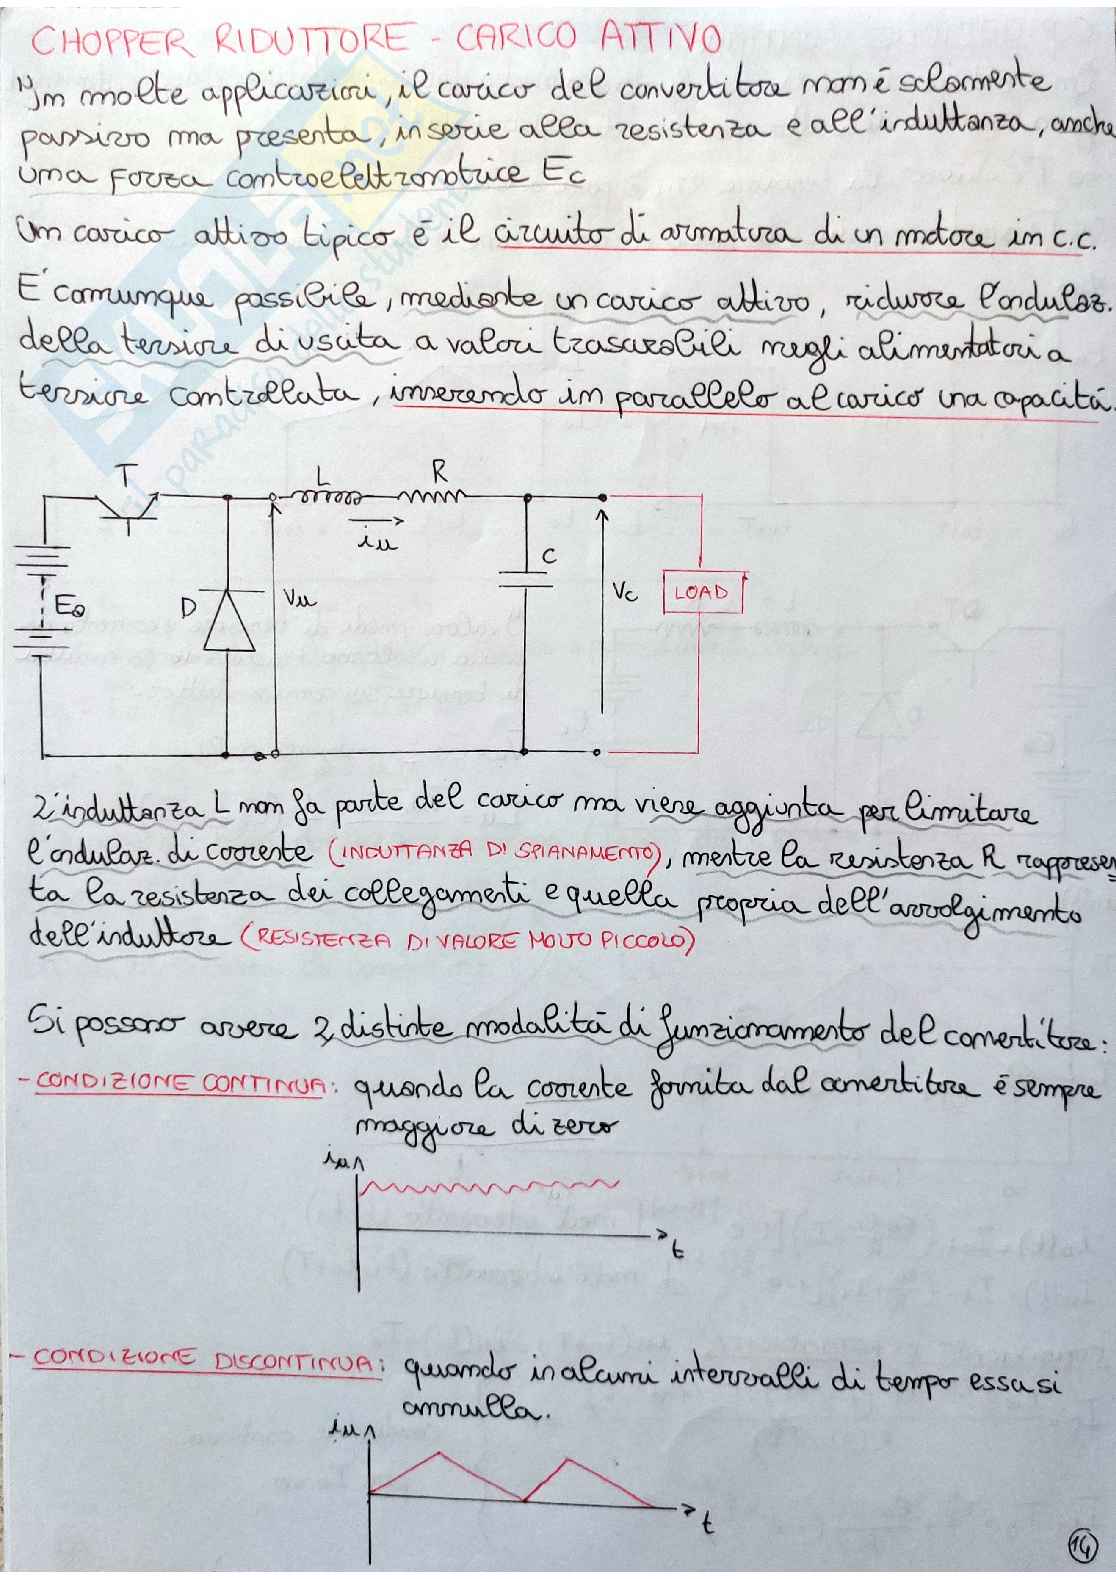 CHOPPER RIDUTTORE - CARICO ATTIVO
In molte applicazioni, il carico del convertitore non è solamente
passivo ma presenta, in serie alla resistenza e all'induttanza, anche
una forza controelettromotrice Ec
Un carico attivo tipico è il circuito di armatura di un motore in c.c.
E' comunque possibile, mediante un carico attivo, ridurre l'ondulaz.
della tensione di uscita a valori trascurabili negli alimentatori a
tensione controllata, inserendo in parallelo al carico una capacità.
T
L
R
iu
C
E0
D
Vu
Vc
LOAD
L'induttanza L non fa parte del carico ma viene aggiunta per limitare
l'ondulaz. di corrente (INDUTTANZA DI SPIANAMENTO), mentre la resistenza R rappresen
ta la resistenza dei collegamenti e quella propria dell'avvolgimento
dell'induttore (RESISTENZA DI VALORE MOLTO PICCOLO)
Si possono avere 2 distinte modalità di funzionamento del convertitore:
- CONDIZIONE CONTINUA: quando la corrente fornita dal convertitore è sempre
maggiore di zero
iu
t
- CONDIZIONE DISCONTINUA: quando in alcuni intervalli di tempo essa si
annulla.
iu
t
14